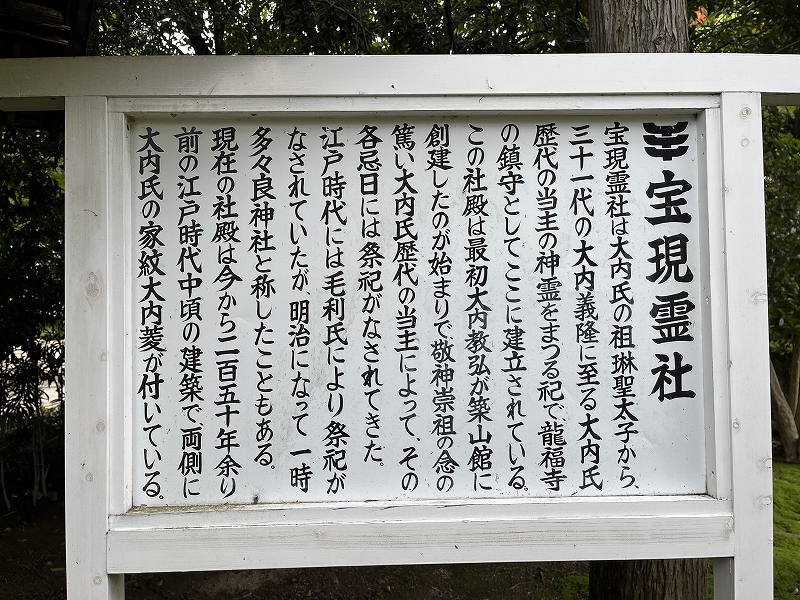 宝現霊社
宝現霊社は大内氏の祖琳聖太子から、
三十一代の大内義隆に至る大内氏
歴代の当主の神霊をまつる祀で龍福寺
の鎮守としてここに建立されている。
この社殿は最初大内教弘が築山館に
創建したのが始まりで敬神崇祖の念の
篤い大内氏歴代の当主によって、その
各忌日には祭祀がなされてきた。
江戸時代には毛利氏により祭祀が
なされていたが、明治になって一時
多々良神社と称したこともある。
現在の社殿は今から二百五十年余り
前の江戸時代中頃の建築で両側に
大内氏の家紋大内菱が付いている。